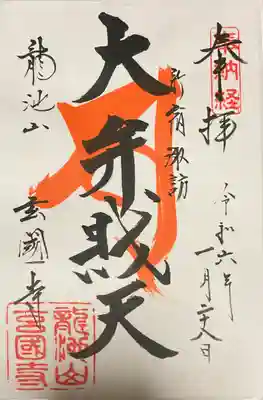 奉納経
奉拝
令和六年
一月二十八日
新宿諏訪
大弁財天
龍池山
玄國寺
龍池山
玄國寺